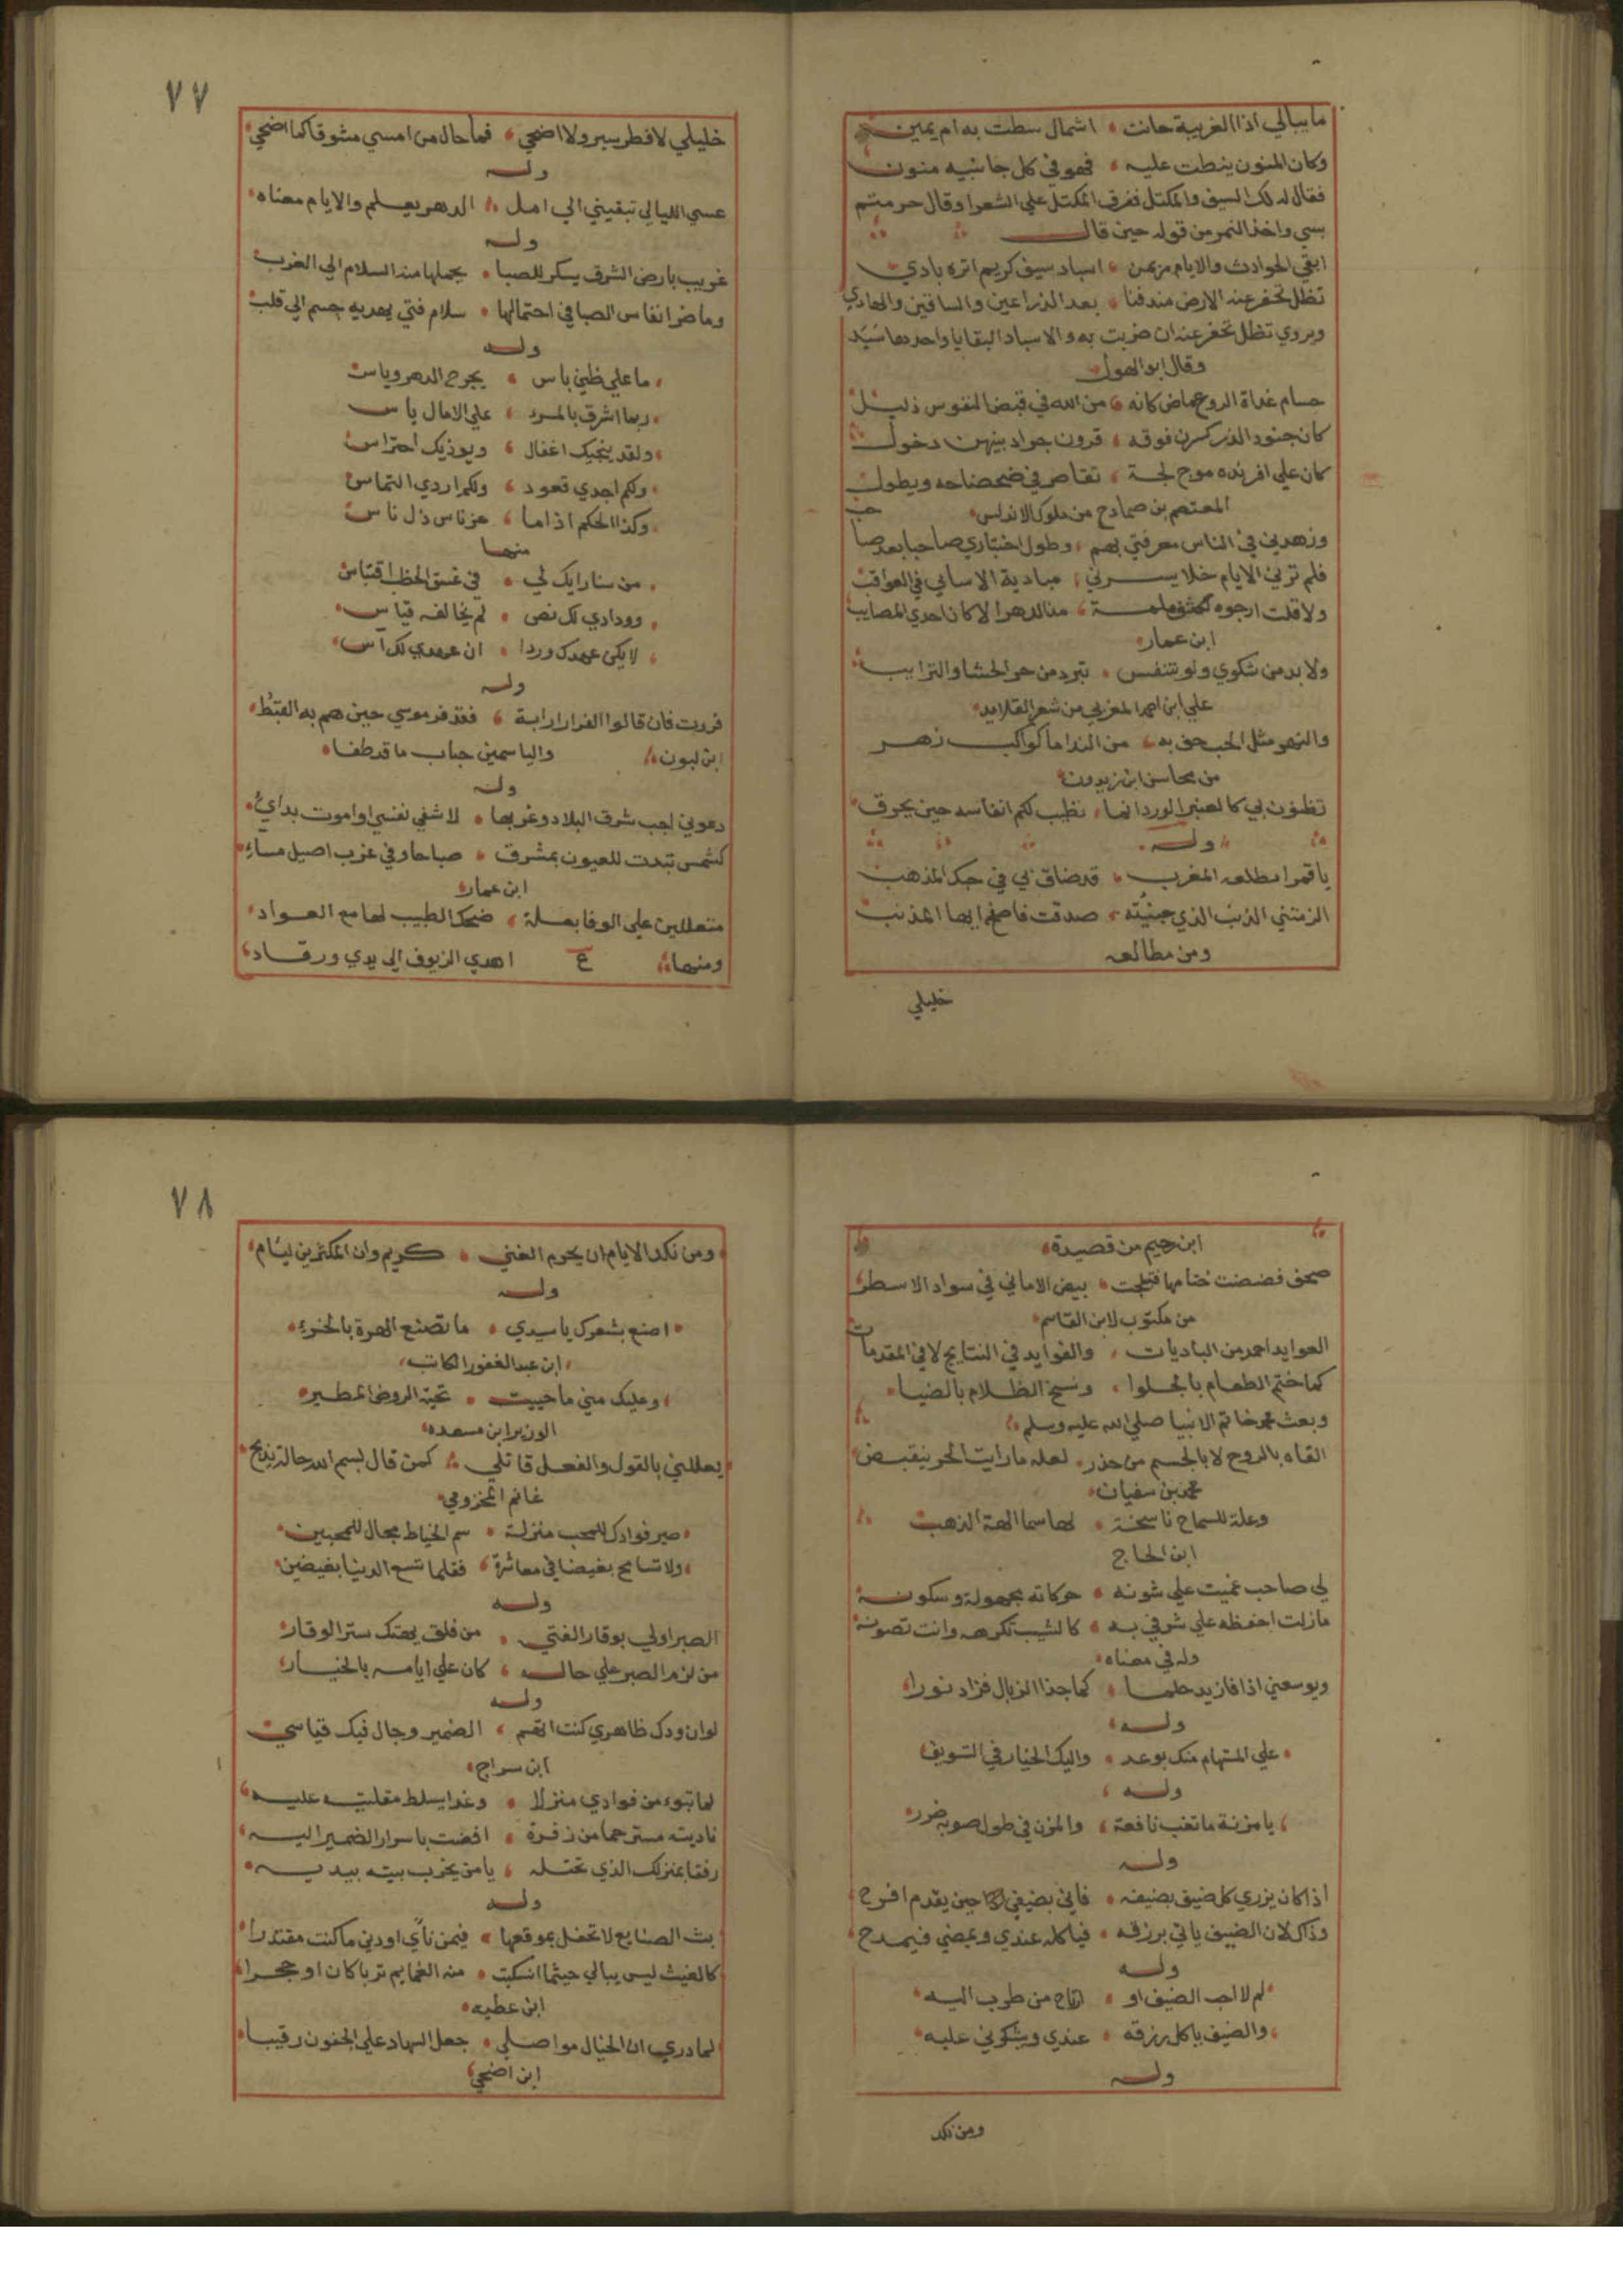 ما يبالي اذا الغريبة حانت ، اشمال سطت به ام يمين
وكان المنون ينطت عليه ، فهو في كل جانبيه منون
فقال له لك السيف والمكتل ففرق المكتل علي الشعرا وقال حرمتم
بسي واخذ النمر من قوله حين قال
ابقي الحوادث والايام من نمر ، اسباد سيف كريم اثره بادي
تظل تحفر عنه الارض مندفنا ، بعد الذراعين والساقين والهادي
ويروي تظل تحفر عنه ان ضربت به والاسباد البقايا واحدها سَبَد
وقال ابو الهول
حسام غداة الروع ماض كانه ، من الله في قبض النفوس ذليل
كان جنود الذر كسرن فوقه ، قرون جراد بينهن دخول
كان علي افرنده موج لجة ، تقاصر في ضحضاحه ويطول
المعتصم بن صمادح من ملوك الاندلس
وزهدني في الناس معرفتي بهم ، وطول اختباري صاحبا بعد صاحب
فلم ترني الايام خلا يسرني ، مباديه الا ساني في العواقب
ولا قلت ارجوه لكشف ملمة ، من الدهر الا كان احدي المصايب
ابن عمار
ولا بد من شكوي ولو بتنفس ، تبرد من حر الحشا والترايب
علي ابن احمد المغربي من شعر القلايد
والنهر مثل المجرة حف به ، من الندا ما كواكب زهر
من محاسن ابن زيدون
تظنون بي كالعنبر الورد انما ، تطيب لكم انفاسه حين يحرق
وله
يا قمرا مطلعه المغرب ، قد ضاق بي في حبك المذهب
الزمتني الذنب الذي جيته ، صدقت فاصفح ايها المذنب
ومن مطالعه
خليلي
٧٧
خليلي لا فطر يسر ولا اضحي ، فما حال من امسي مشوقا كما اضحي
وله
عسي الليالي تبقيني الي امل ، الدهر يعلم والايام معناه
وله
غريب بارض الشرق يسكر للصبا ، يحملها منه السلام الي الغرب
وما ضر انفاس الصبا في احتمالها ، سلام فتي يهديه جسم الي قلب
وله
ما علي ظني باس ، يجرح الدهر وياس
ربما اشرق بالمرء ، علي الامال ياس
ولقد ينجيك اغفال ، ويوذيك احتراس
ولكم اجدي قعود ، ولكم اردي التماس
وكذا الحكم اذا ما ، عز ناس ذل ناس
منها
من سنا رايك لي ، في غسق الخطب اقتباس
وودادي لك نص ، لم يخالفه قياس
لا يكن عهدك وردا ، ان عهدي لك آس
وله
فررت فان قالوا الفرار ارابة ، فقد فر موسي حين هم به القبط
ابن لبون ، والياسمين حباب ما قد طفا
وله
دعوني اجب شرق البلاد وغربها ، لاشفي نفسي او اموت بدائي
كشمس تبدت للعيون بمشرق ، صباحا وفي غرب اصيل مساءِ
ابن عمار
متعللين علي الوفا بعلة ، ضحك الطبيب لها مع العواد
ومنها ، ع اهدي الزيوف الي يدي ورقاد
ابن رحيم من قصيدة
صحف فضضت ختامها فتبلجت ، بيض الاماني في سواد الاسطر
من مكتوب لابن القاسم
العوايد احمد من الباديات ، والفوايد في النتايج لا في المقدمات
كما ختم الطعام بالحلوا ، ونسخ الظلام بالضيا
وبعث محمد خاتم الانبيا صلي الله عليه وسلم
القاه بالروح لا بالجسم من حذر ، لعله ما رايت الحر ينقبض
محمد بن سفيان
وعلة للسماح ناسخة ، لها سما الهة الذهب
ابن الحاج
لي صاحب عميت علي شونه ، حركاته مجهولة وسكونه
ما زلت احفظه علي شرقي به ، كالشيب تكرهه وانت تصونه
وله في معناه
ويوسعني اذا فازيد حلما ، كما جذ الذبال فزاد نورا
وله
علي المستهام منك بوعد ، واليك الخيار في التسويف
وله
يا مزنة ما تغب نافعة ، والمزن في طول صوبه ضرر
وله
اذا كان يزري كل ضيف بضيفه ، فاني بضيفي حين يقدم افرح
وذاك لان الضيف ياتي برزقه ، فياكله عندي ويمضي فيمدح
وله
لم لا احب الضيف او ، ارتاح من طرب اليه
والضيف ياكل رزقه ، عندي ويشكرني عليه
وله
ومن نكد
٧٨
ومن نكد الايام ان يحرم الغني ، كريم وان المكثرين ليام
وله
اصنع بشعرك يا سيدي ، ما تصنع الهرة بالخرءِ
ابن عبد الغفور الكاتب
وعليك مني ما حييت ، تحية الروض المطير
الوزير ابن مسعده
يعللني بالقول والفعل قاتلي ، كمن قال بسم الله حالة يذبح
غانم المخزومي
صير فوادك للمحب منزلة ، سم الخياط مجال للمحبين
ولا تسامح بغيضا في معاشرة ، فقلما تسع الدنيا بغيضين
وله
الصبر اولي بوقار الفتي ، من قلق يهتك ستر الوقار
من لزم الصبر علي حاله ، كان علي ايامه بالخيار
وله
لو ان ودك ظاهري كنت اتهم ، الضمير وجال فيك قياسي
ابن سراج
لما تبوء من فوادي منزلا ، وغدا يسلط مقلتيه عليه
ناديته مسترحما من زفرة ، افضت باسرار الضمير اليه
رفقا بمنزلك الذي تحتله ، يا من يخرب بيته بيديه
وله
بث الصنايع لا تحفل بموقعها ، فيمن ناًي او دني ما كنت مقتدرا
كالغيث ليس يبالي حيثما انسكبت ، منه الغمايم تربا كان او حجرا
ابن عطيه
لما دري ان الخيال مواصلي ، جعل السهاد علي الجفون رقيبا
ابن اضحي